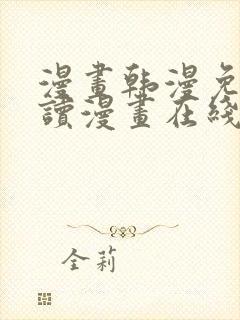 漫畫韩漫免
讀漫畫在綫
全莉